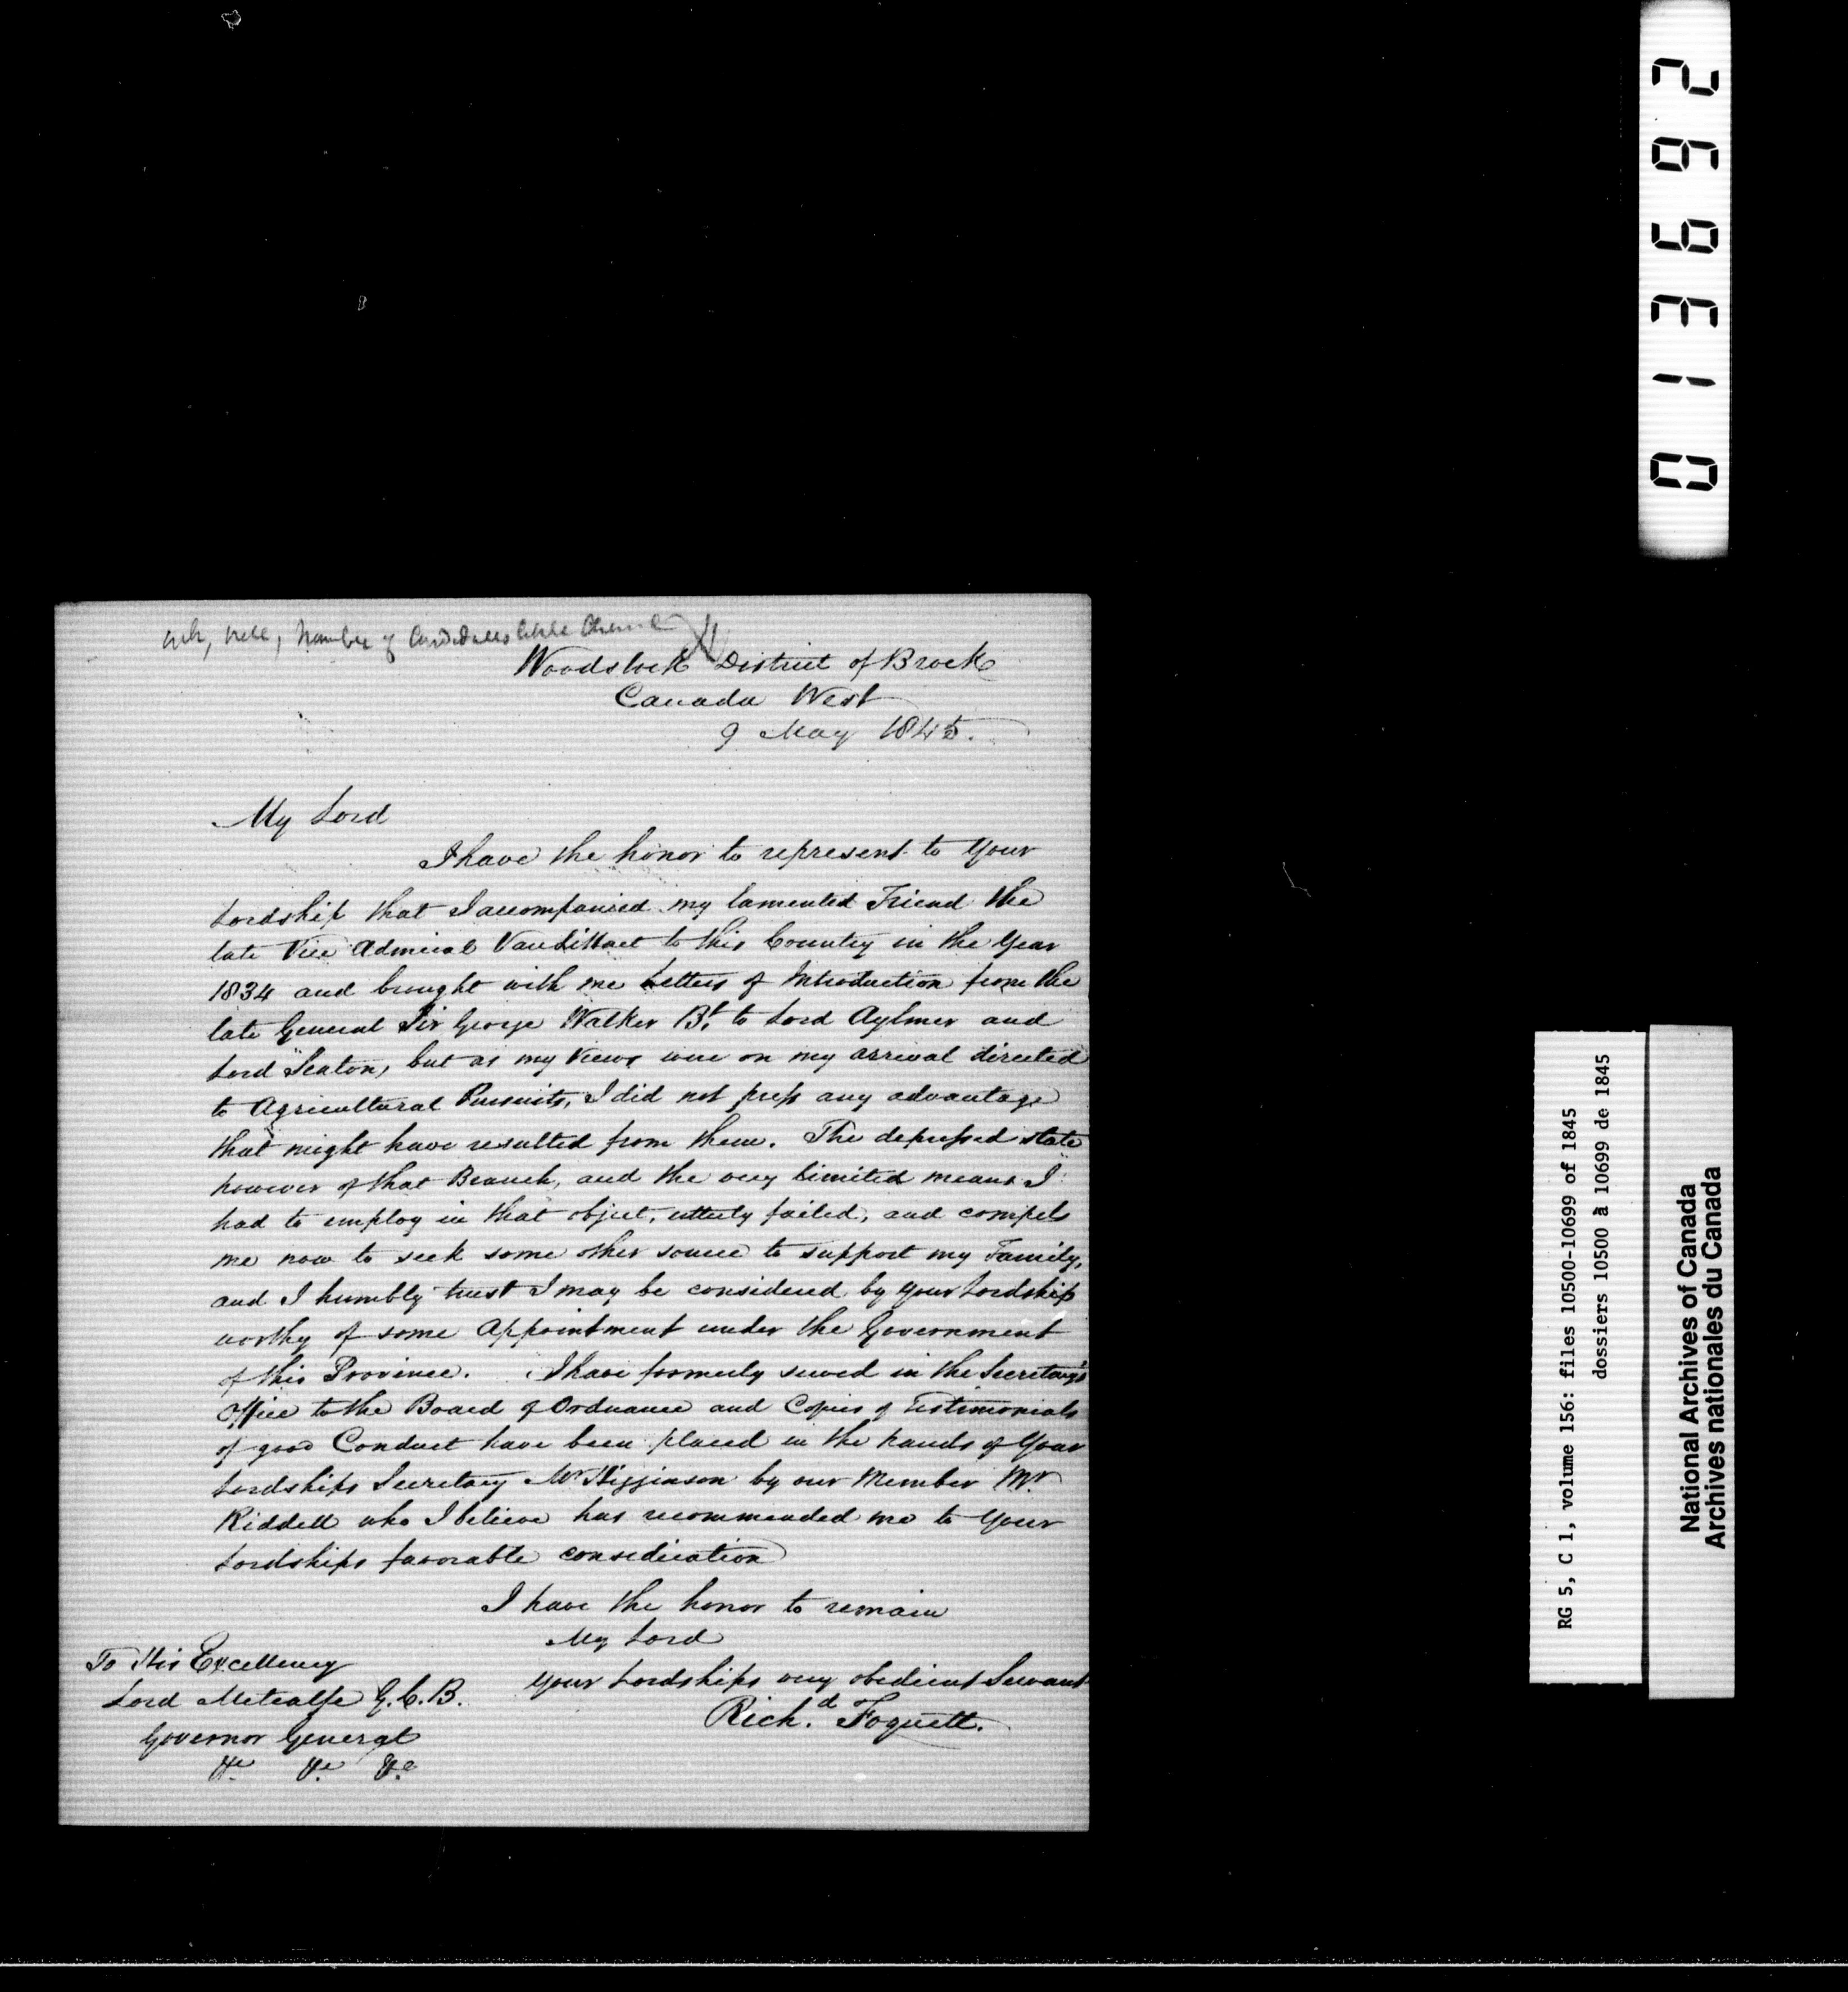 Ack, recd, Number of Candidates little Chance
Woodstock District of Brock
Canada West
9 May 1845.
My Lord
I have the honor to represent to Your
Lordship that I accompanied my lamented Friend the
late Vice Admiral Vansittart to this Country in the Year
1834 and brought with me Letters of Introduction from the
late General Sir George Walker Bt. to Lord Aylmer and
Lord Seaton, but as my views were on my arrival directed
to Agricultural Pursuits, I did not press any advantage
that might have resulted from them. The depressed state
however of that Branch, and the very limited means I
had to employ in that object, utterly failed, and compels
me now to seek some other source to support my Family,
and I humbly trust I may be considered by Your Lordship
worthy of some Appointment under the Government
of this Province. I have formerly served in the Secretary's
Office to the Board of Ordnance and Copies of Testimonials
of good Conduct have been placed in the hands of Your
Lordships Secretary Mr Higginson by our Member Mr.
Riddell who I believe has recommended me to Your
Lordships favorable consideration
I have the honor to remain
My Lord
Your Lordships very obedient Servant
Rich.d Foquett.
To His Excellency
Lord Metcalfe G.C.B.
Governor General
&c &c &c
013692
RG 5, C 1, volume 156: files 10500-10699 of 1845
dossiers 10500 à 10699 de 1845
National Archives of Canada
Archives nationales du Canada